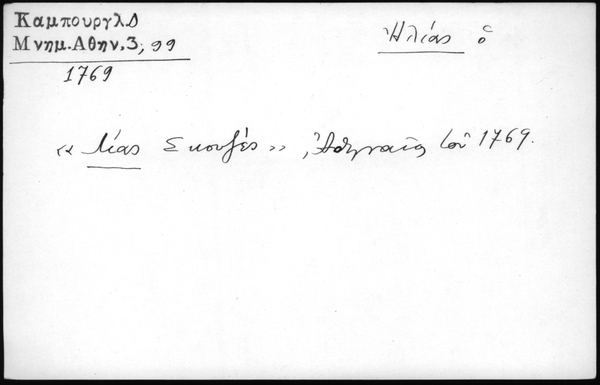 Καμπουργλ.Δ
Μνημ.Αθην.3, 99
1769
Ἠλίας ὁ
« Λίας Σκουζὲς », Ἀθηναῖος τοῦ 1769.